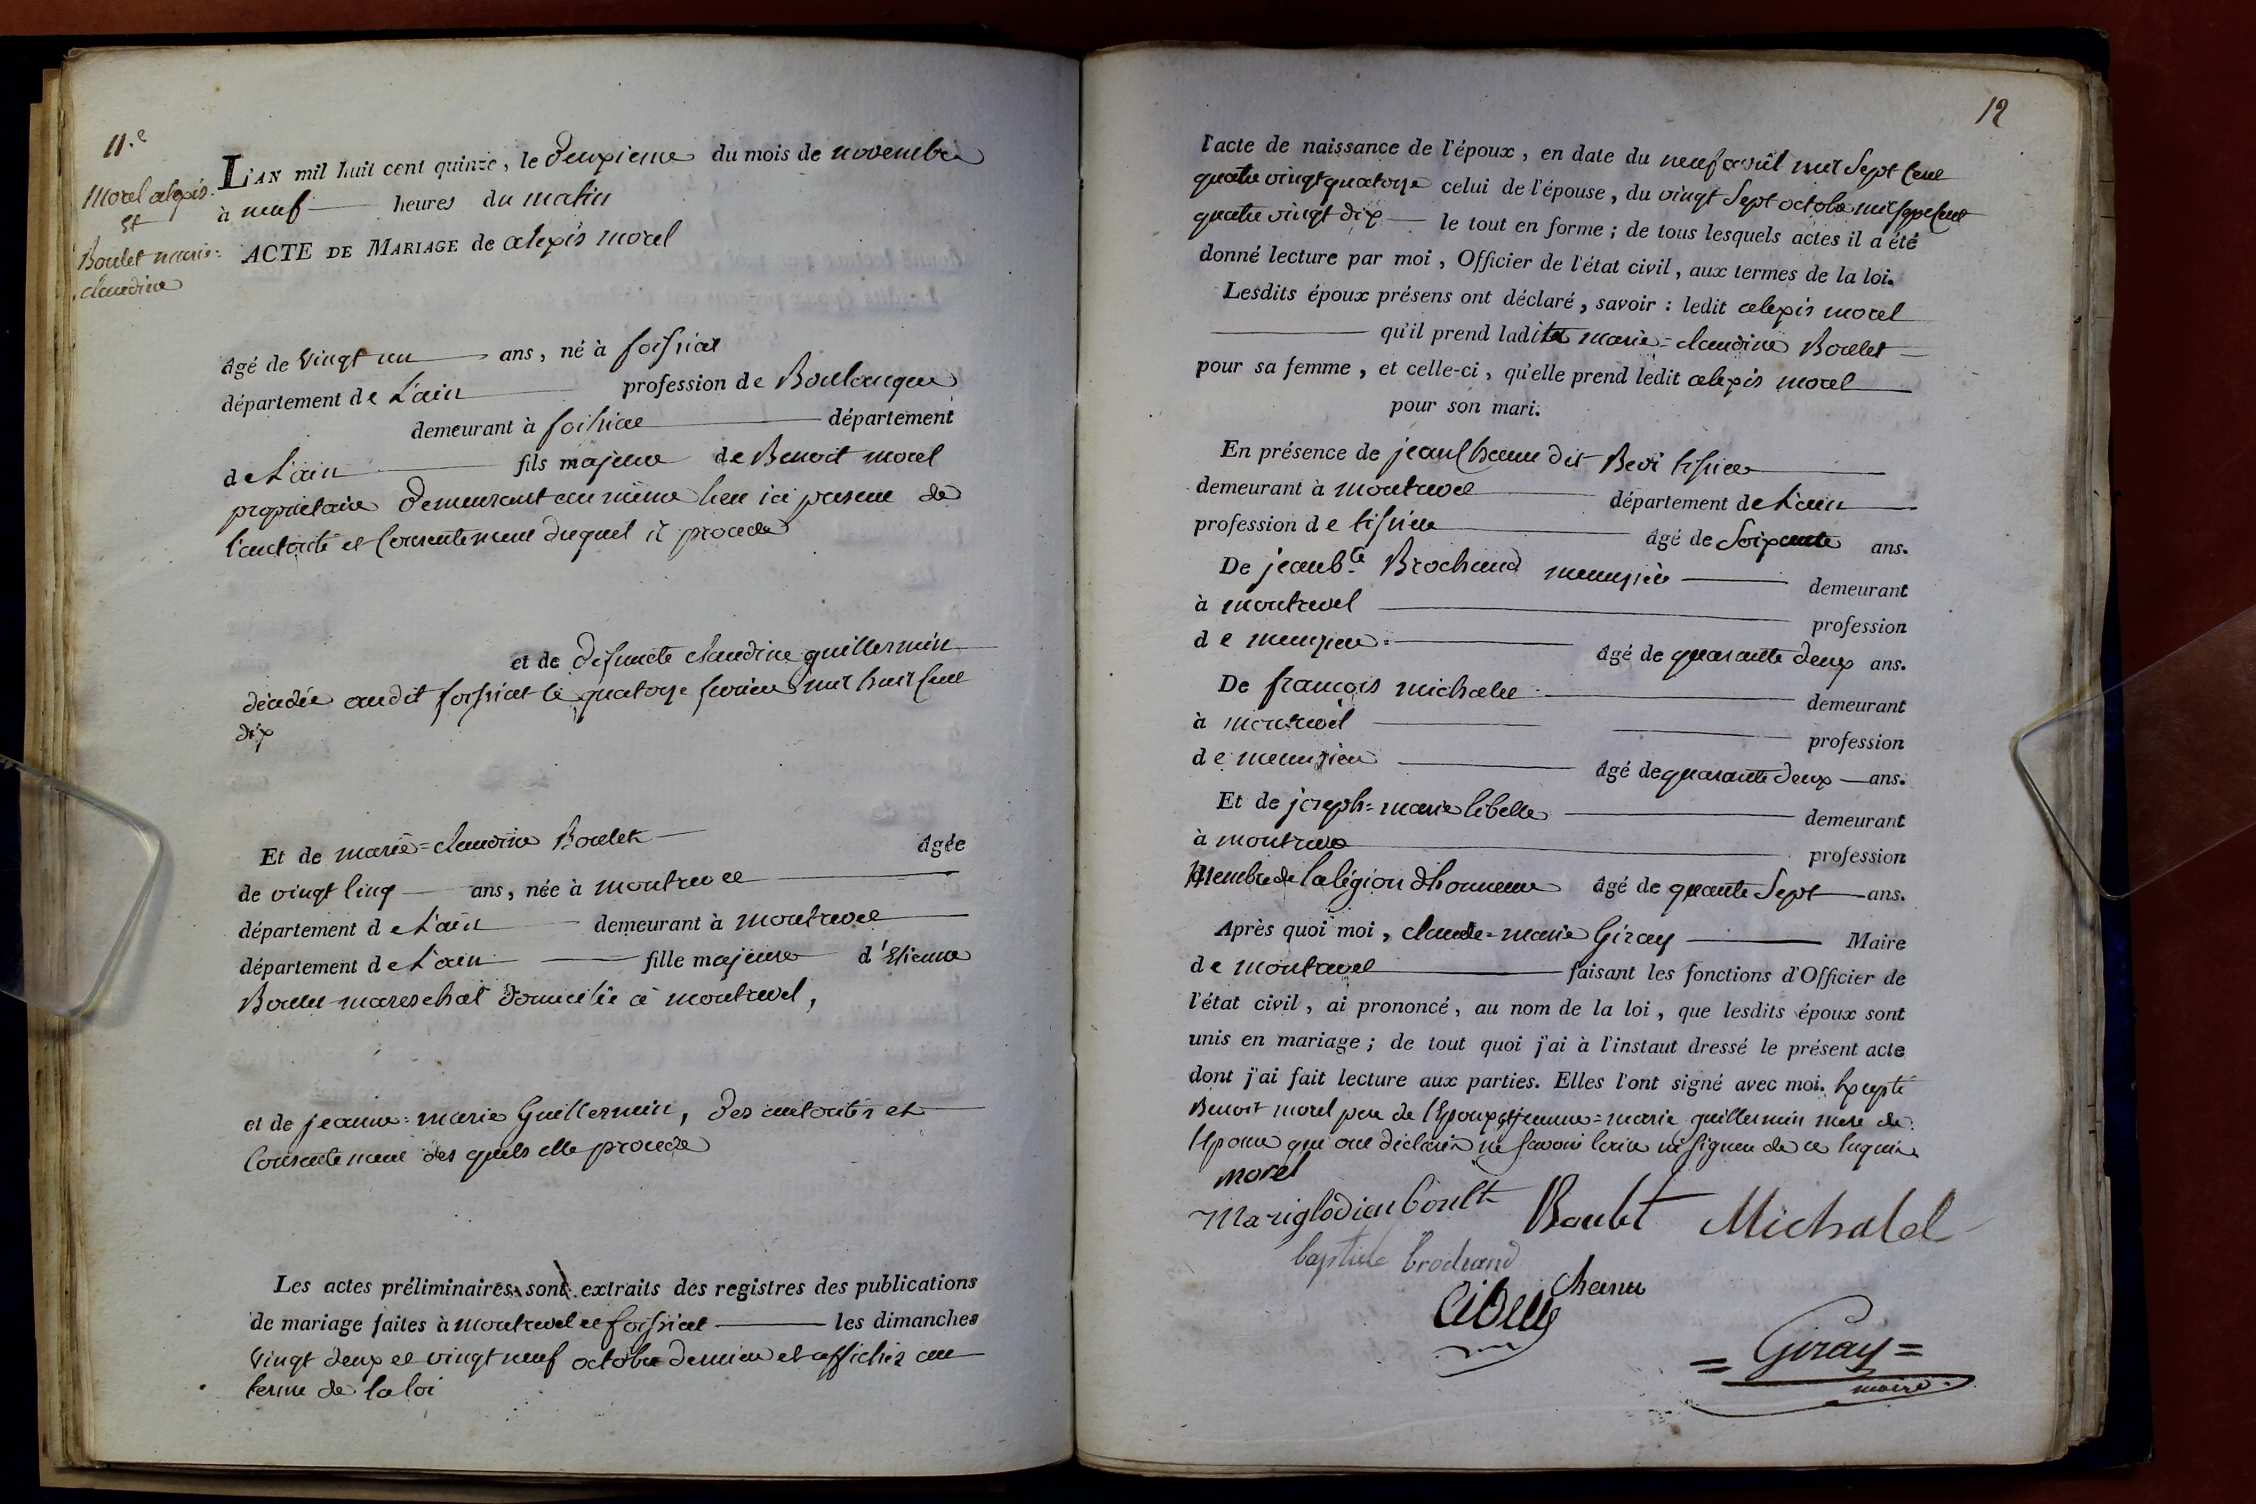 11.e
Morel alexis
et
Boulet marie=
claudine
L'AN mil huit cent quinze, le deuxieme du mois de novembre
à neuf heures du matin
ACTE DE MARIAGE de alexis morel
âgé de vingt un ans, né à foissiat
département de L'ain profession de Boulanger
demeurant à foissiat département
de L'ain fils majeur de Benoit morel
propriétaire demeurant au même lieu ici présent de
l'autorité et Consentement duquel il procede
et de defuncte claudine guillermin
décédée audit foissiat le quatorze fevrier mil huit Cent
dix
Et de marie=claudine Boulet âgée
de vingt Cinq ans, née à montrevel
département de L'ain demeurant à montrevel
département de L'ain fille majeure d'Etienne
Boulet mareschal domicilié à montrevel,
et de jeanne=marie Guillermin, des autorités et
Consentement des quels elle procede
Les actes préliminaires sont extraits des registres des publications
de mariage faites à montrevel et foissiat les dimanches
vingt deux et vingt neuf octobre dernier et affichés au
terme de la loi
12
l'acte de naissance de l'époux, en date du neuf avril mil Sept Cent
quatre vingt quatorze celui de l'épouse, du vingt Sept octobre mil sept Cent
quatre vingt dix le tout en forme; de tous lesquels actes il a été
donné lecture par moi, Officier de l'état civil, aux termes de la loi.
Lesdits époux présens ont déclaré, savoir: ledit alexis morel
qu'il prend ladite marie=claudine Boulet
pour sa femme, et celle-ci, qu'elle prend ledit alexis morel
pour son mari.
En présence de jean Chanu dit tissier
demeurant à montrevel département de L'ain
profession de tissier âgé de Soixante ans.
De jean bte Brochand menuisier demeurant
à montrevel profession
de menuisier âgé de quarante deux ans.
De françois michalet demeurant
à montrevel profession
de menuisier âgé de quarante deux ans.
Et de joseph=marie libelle demeurant
à montrevel profession
Membre de la légion d'honneur âgé de quarante Sept ans.
Après quoi moi, claude=marie Giray Maire
de montrevel faisant les fonctions d'Officier de
l'état civil, ai prononcé, au nom de la loi, que lesdits époux sont
unis en mariage; de tout quoi j'ai à l'instant dressé le présent acte
dont j'ai fait lecture aux parties. Elles l'ont signé avec moi. Excepté
Benoit morel pere de l'Epoux et jeanne=marie guillermin mere de
l'Epouse qui ont déclaré ne savoir Ecrire ni signer de ce Enquis
morel
Mariglodien boult Boulet Michalel
baptiste brochand
Chanu
Giray
maire